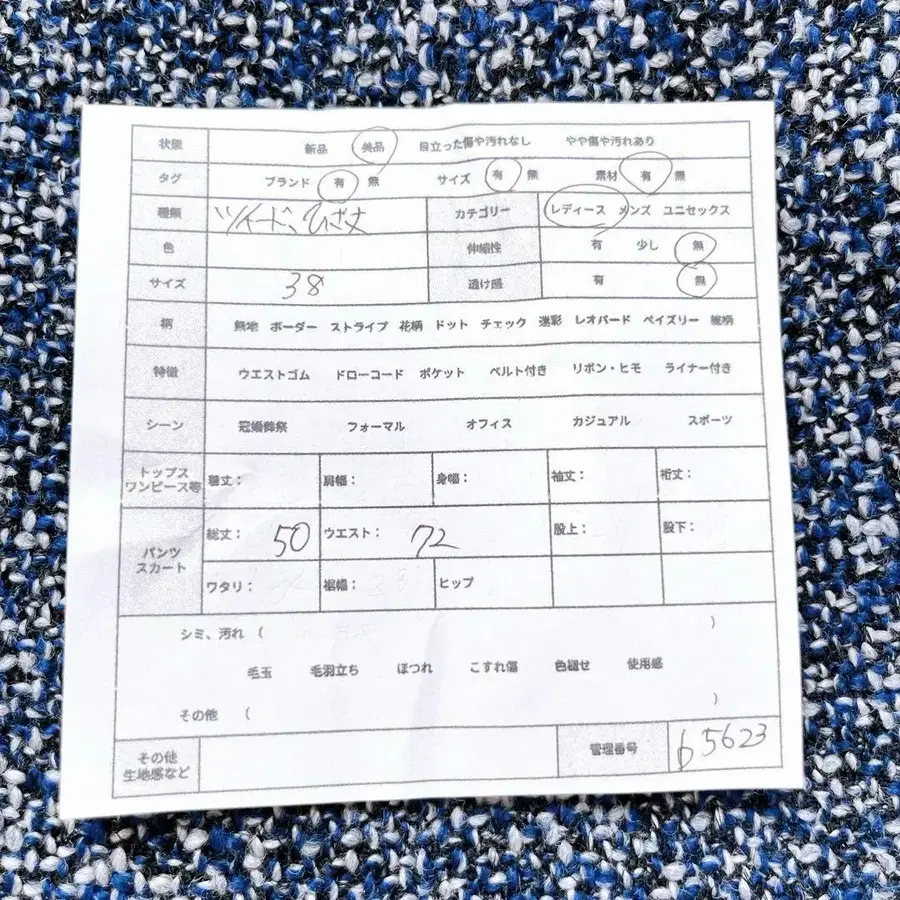 状態 新品 美品 目立った傷や汚れなし やや傷や汚れあり
タグ ブランド 有 無 サイズ 有 無 素材 有 無
種類 ツイード、ひざ丈 カテゴリー レディース メンズ ユニセックス
色 伸縮性 有 少し 無
サイズ 38 透け感 有 無
柄 無地 ボーダー ストライプ 花柄 ドット チェック 迷彩 レオパード ペイズリー 総柄
特徴 ウエストゴム ドローコード ポケット ベルト付き リボン・ヒモ ライナー付き
シーン 冠婚葬祭 フォーマル オフィス カジュアル スポーツ
トップス
ワンピース等 着丈: 肩幅: 身幅: 袖丈: 裄丈:
パンツ
スカート
総丈: 50 ウエスト: 72 股上: 股下:
ワタリ: 裾幅: ヒップ
シミ、汚れ ( )
毛玉 毛羽立ち ほつれ こすれ傷 色褪せ 使用感
その他 ( )
その他
生地感など 管理番号 b5623